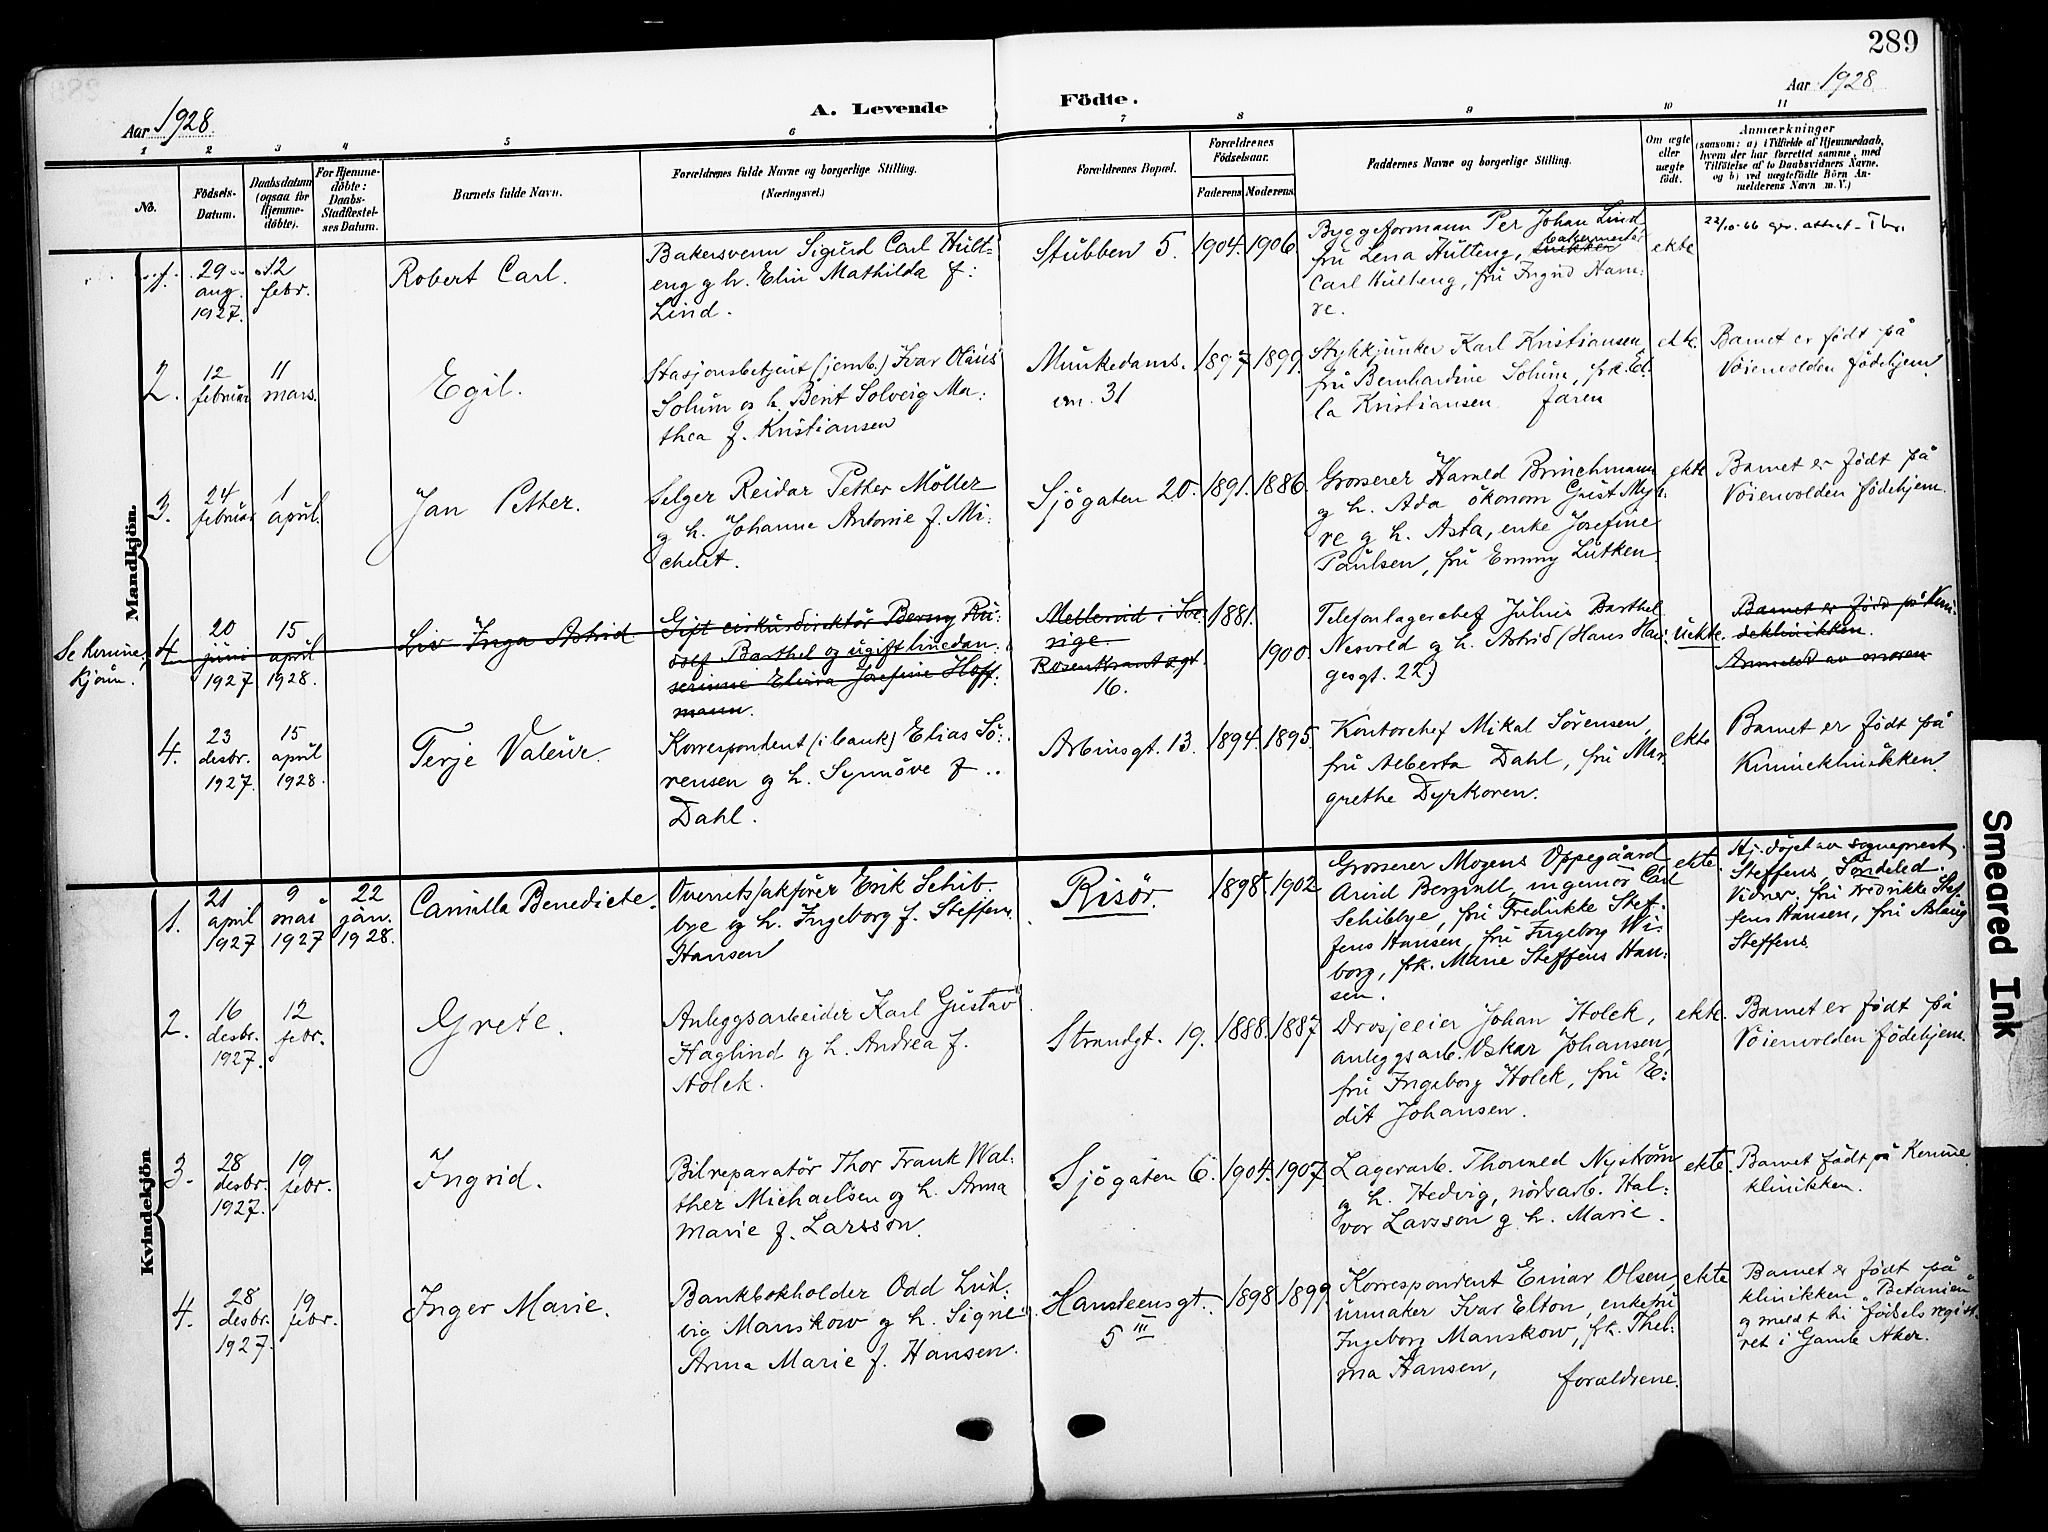 289
Aar 1928.
A. Levende Födte.
Aar 1928
1 2 3 4 5 6 7 8 9 10 11
No.
Födsels-
Datum.
Daabsdatum
(ogsaa for
Hjemme-
döbte).
For Hjemme-
döbte:
Daabs-
Stadfæstel-
ses Datum.
Barnets fulde Navn.
Forældrenes fulde Navne og borgerlige Stilling.
(Næringsvei.)
Forældrenes Bopæl.
Forældrenes
Födselsaar.
Faderens Moderens
Faddernes Navne og borgerlige Stilling.
Om ægte
eller
uægte
födt.
Anmærkninger
(saasom: a) i Tilfælde af Hjemmedaab,
hvem der har forrettet samme, med
Tilföielse af to Daabsvidners Navne,
og b) ved uægtefödte Börn An-
melderens Navn m. V.)
Mandkjön.
1.
29
aug.
1927.
12
febr.
Robert Carl.
Bakersvenn Sigurd Carl Hült:
eng g h. Elin Mathilda f:
Lind.
Stübben 5.
1904.
1906.
Byggeformann Per Johan Lind
frü Lena Hülteng, bakermester
Carl Hülteng, frü Ingrid Ham:
re.
ekte
22/10-66 attest
2.
12
februar
11
mars.
Egil.
Stasjonsbetjent (jernb.) Ivar Olaüs
Solüm og h. Berit Solveig Ma:
thea f. Kristiansen
Münkedams.
vn. 31
1897
1899
Stykkjünker Karl Kristiansen
frü Bernhardine Solüm, frk. El:
la Kristiansen faren
ekte.
Barnet er födt på
Vöienvolden födehjem
3.
24
februar
1
april.
Jan Petter.
Selger Reidar Petter Möller
g h. Johanne Antonie f. Mi:
chelet.
Sjögaten 20.
1891.
1886.
Grosserer Harald Brinchmann
g h. Ada ökonom Gust Myh:
re g h. Asta, enke Josefine
Paülsen, frü Emmy Lütken
ekte
Barnet er födt på
Vöienvolden födehjem.
Se kvinne-
kjön.
4.
20
jüni
1927
15
april
1928.
Liv Inga Astrid
Gift cirküsdirektör Berny Rü:
dolf Barthel og ügift linedan:
serinne Elvira Josefine Hoff:
mann.
Mellerud i Sve
rige.
Rosenkrantzgt.
16.
1881.
1900.
Telefonlagerchef Jülius Barthel
Nesvold g h. Astrid (Hans Hau:
gesgt. 22)
üekte.
Barnet er född på Kvin
neklinikken.
Anmeldt av moren
4.
23
desbr.
1927.
15
april
1928.
Terje Valeür.
Korrespondent (i bank) Elias Sö:
rensen g h. Synnöve f.
Dahl.
Arbinsgt. 13.
1894.
1895.
Kontorchef Mikal Sörensen,
frü Alberta Dahl, frü Mar
grethe Dyrkoren.
ekte
Barnet er födt på
Kvinneklinikken.
Kvindekjön
1.
21
april
1927
9
mai
1927
22
jan.
1928.
Camilla Benedicte.
Overretssakförer Erik Schib.
bye g h. Ingeborg f. Steffens
Hansen
Risör.
1898
1902
Grosserer Mogens Oppegaard
Arvid Bergvall, ingeniör Carl
Schibbye, frü Fredrikke Stef:
fens Hansen, frü Ingeborg Wi:
borg, frk. Marie Steffens Han:
sen.
ekte.
Hj. döpt av sogneprest
Steffens, Söndeled.
Vidner, frü Fredrikke Stef
fens Hansen, frü Aslaüg
Steffens
2.
16
desbr.
1927.
12
febr.
Grete.
Anleggsarbeider Karl Güstav
Haglind g h. Andrea f.
Holek.
Strandgt. 19.
1888.
1887
Drosjeeier Johan Holek,
anleggsarb. Oskar Johansen,
frü Ingeborg Holek, frü E:
dit Johansen.
ekte.
Barnet er födt på
Vöienvolden födehjem.
3.
28
desbr.
1927.
19
febr.
Ingrid.
Bilreparatör Thor Frank Wal:
ther Michaelsen og h. Anna
Marie f. Larsson.
Sjögaten 6.
1904.
1907
Lagerarb. Thorvald Nyström
g h. Hedvig, nödsarb. Hal:
vor Larsson g h. Marie.
ekte.
Barnet födt på Kvinne
klinikken.
4.
28
desbr.
1927.
19
febr.
Inger Marie.
Bankbokholder Odd Lüd:
vig Manskow g h. Signe
Anna Marie f. Hansen.
Hansteensgt.
5 III
1898
1899
Korrespondent Einar Olsen
ürmaker Ivar Elton, enkefrü
Ingeborg Manskow, frk. Thel:
ma Hansen, forældrene.
ekte
Barnet er födt på
klinikken „Betanien"
g meldt til födselsregist.
ret i Gamle Aker.
Smeared Ink